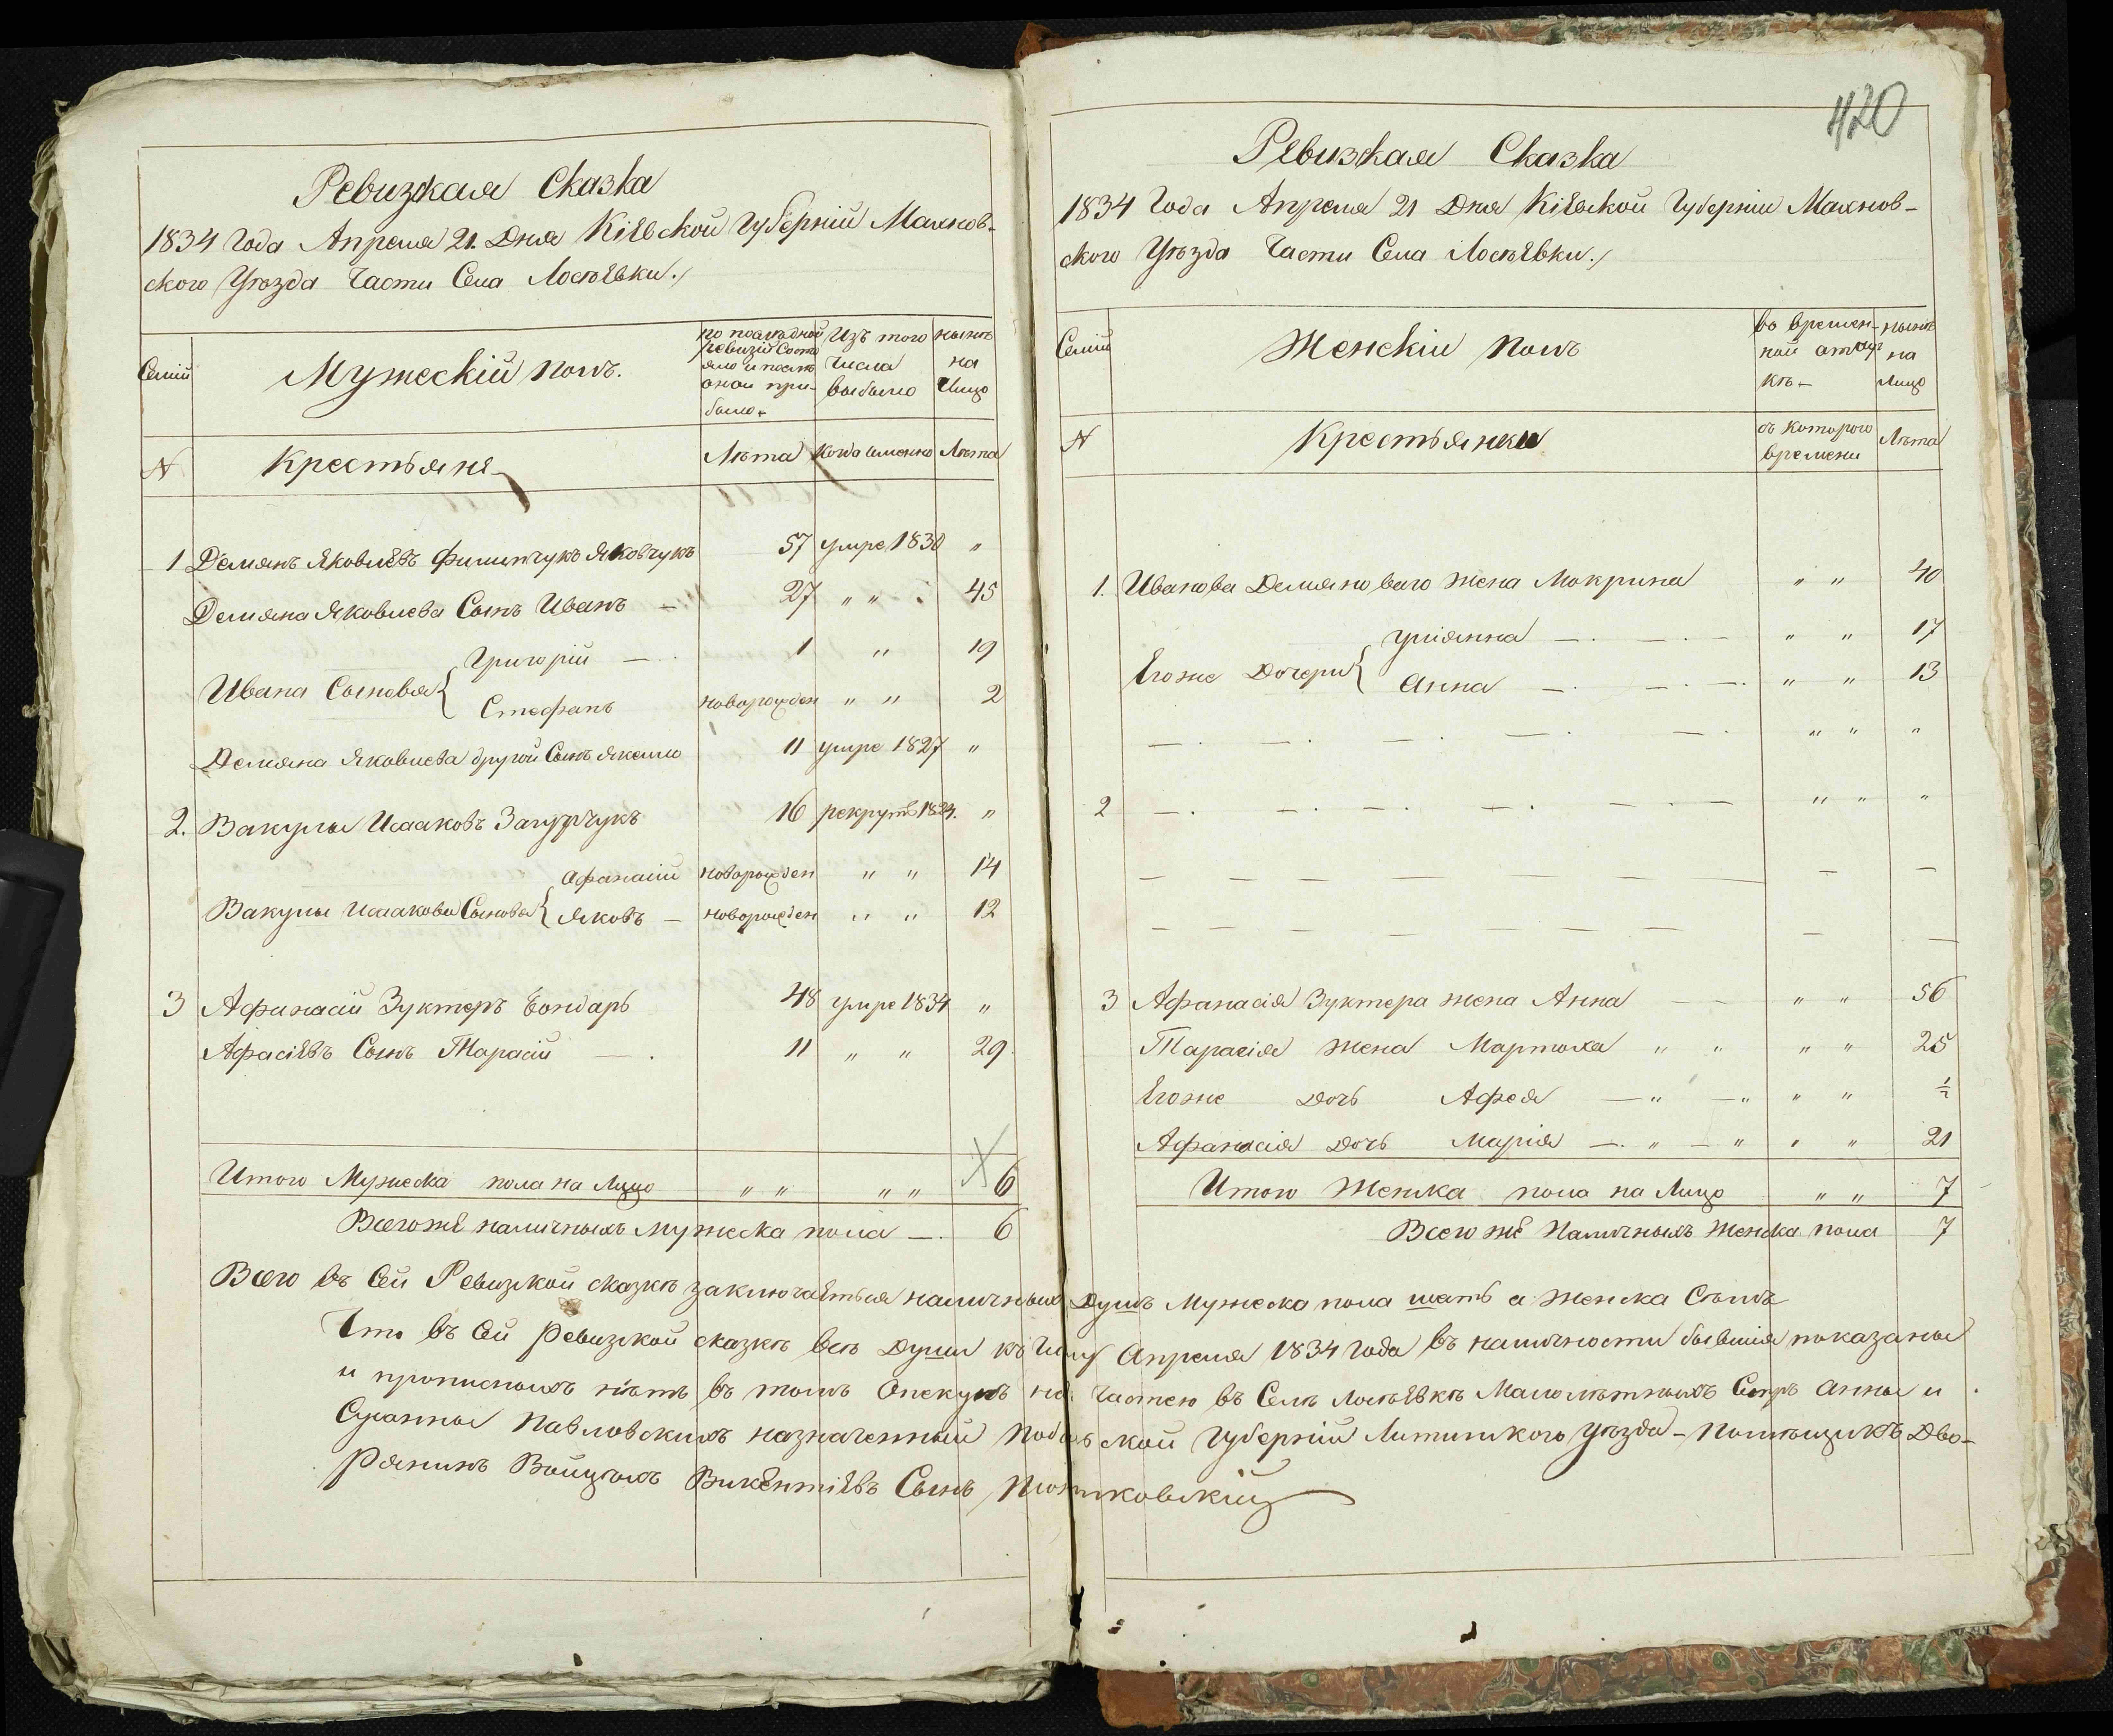 Ревизкая Сказка
1834 Года Апреля 21. Дня Кіевской Губерніи Махнов-
ского Уѣзда Части Села Лосіевки./
Семіи
Мужескій полъ.
по послѣдной ревизіи Состояло и послѣ оной при-было
Изъ того Числа выбыло
нынѣ на Лицо
N
Крестьяне
Лѣта
Когда именно
Лѣта
1 Демянъ Яковлевъ Филипчукъ Яковчукъ 57 умре 1830 "
Демяна Яковлева Сынъ Иванъ — 27 " " 45
Григорій — 1 " 19
Ивана Сыновья {
Стефанъ новорожден " " 2
Демяна Яковлева другой Сынъ Якемо 11 умре 1827 "
2. Вакулы Исааковъ 16 рекрутъ 1824. "
Афанасій новорожден " " 14
Вакулы Исаакова Сыновья { Яковъ — новорожден " " 12
3 Афанасій Зуктеръ Бондарь 48 умре 1834 "
Афасіевъ Сынъ Тарасій — 11 " " 29
Итого Мужеска пола на Лицо " " " " 6
Всего же наличныхъ мужеска пола — 6
420
Ревизкая Сказка
1834 Года Апреля 21 Дня Кіевской Губерніи Махнов-
ского Уѣзда Части Села Лосіевки./
Семіи
Женскіи полъ
во времен-ной отлуч-кѣ —
нынѣ на Лицо
N
Крестьянки
съ которого времени
Лѣта
1. Иванова Демяноваго жена Мокрина " " 40
Уліянна — " " 17
Егоже Дочери {
Анна — " " 13
" " "
2 " " "
3 Афанасія Зуктера жена Анна " " 56
Тарасія жена Мартоха " " " " 25
Егоже дочь Афея — " — " " " ½
Афанасія дочь Марія — " — " " " 21
Итого Женска пола на Лицо " " 7
Всего же Наличныхъ Женска пола 7
Всего въ Сей Ревизкой сказкѣ заключаеться наличныхъ Душъ Мужеска пола шать а женска Сѣмъ
Что въ Сей Ревизкой сказкѣ всѣ Души къ Апреля 1834 Года въ наличности бывшія показаны
и прописныхъ нѣтъ въ томъ Опекунъ надъ Частею въ Селѣ Лосіевкѣ Малолѣтныхъ Сестръ Анны и
Сусанны Павловскихъ назначенный Подольской Губерніи Литинского Уѣзда - Помѣщикъ Дво-
рянинъ Войцѣхъ Викентіевъ Сынъ